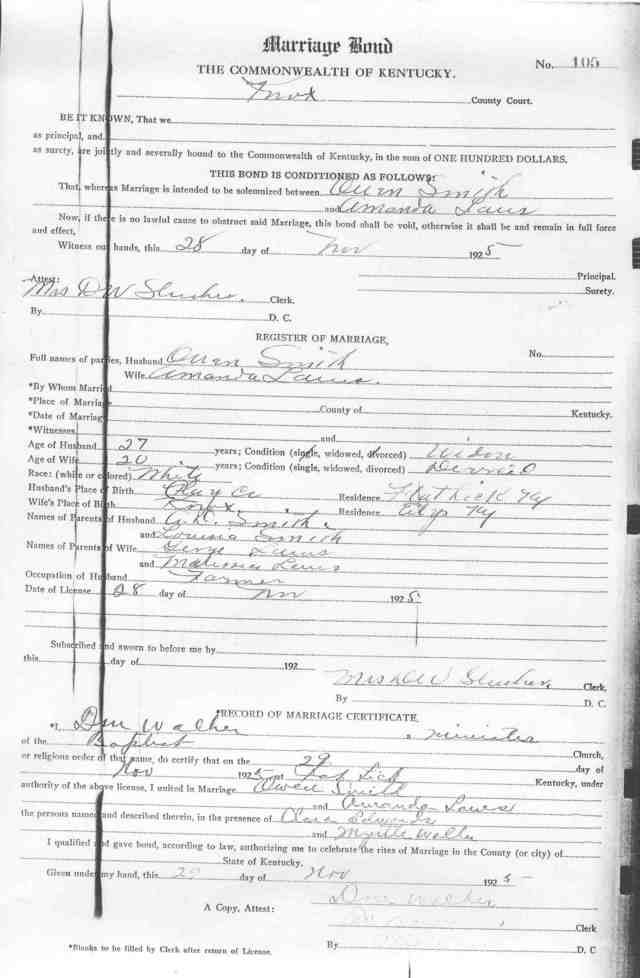 Marriage Bond
THE COMMONWEALTH OF KENTUCKY.
No. 105
Knox County Court.
BE IT KNOWN, That we
as principal, and
as surety, are jointly and severally bound to the Commonwealth of Kentucky, in the sum of ONE HUNDRED DOLLARS.
THIS BOND IS CONDITIONED AS FOLLOWS:
That, whereas Marriage is intended to be solemnized between Owen Smith
and Amanda Laws
Now, if there is no lawful cause to obstruct said Marriage, this bond shall be void, otherwise it shall be and remain in full force
and effect,
Witness our hands, this 28 day of Nov 1925
Principal.
Attest:
Surety.
Mrs D W Slusher. Clerk.
By D. C.
REGISTER OF MARRIAGE,
Full names of parties, Husband Owen Smith No.
Wife Amanda Laws.
*By Whom Married
*Place of Marriage County of Kentucky.
*Date of Marriage
*Witnesses and
Age of Husband 27 years; Condition (single, widowed, divorced)
Age of Wife 20 years; Condition (single, widowed, divorced)
Race: (white or colored) White
Husband's Place of Birth Clay Co Residence Flat Lick Ky
Wife's Place of Birth Knox. Residence Elys Ky
Names of Parents of Husband Smith.
and Louisa Smith
Names of Parents of Wife George Laws
and Laws
Occupation of Husband Farmer
Date of License 28 day of Nov 1925
Subscribed and sworn to before me by
this day of 192
Mrs D W Slusher. Clerk,
By D. C.
*RECORD OF MARRIAGE CERTIFICATE.
*I, Walker, minister
of the Baptist Church,
or religious order of that name, do certify that on the 29 day of
Nov 1925 at Flat Lick Kentucky, under
authority of the above license, I united in Marriage Owen Smith
and Amanda Laws
the persons named and described therein, in the presence of Clara Edwards
and Myrtle
I qualified and gave bond, according to law, authorizing me to celebrate the rites of Marriage in the County (or city) of
State of Kentucky.
Given under my hand, this 29 day of Nov 1925
Walker
A Copy, Attest:
Clerk
By D. C
*Blanks to be filled by Clerk after return of License.